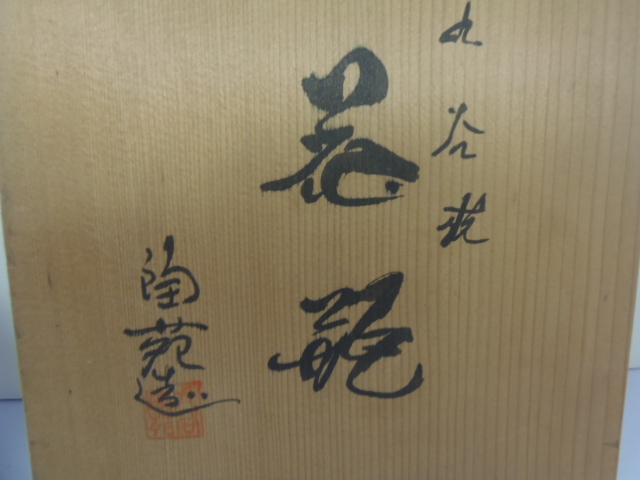 九谷焼
花瓶
陶苑造